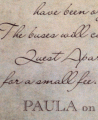 have been a
The buses will c
Quest Apar
for a small fee.
PAULA on